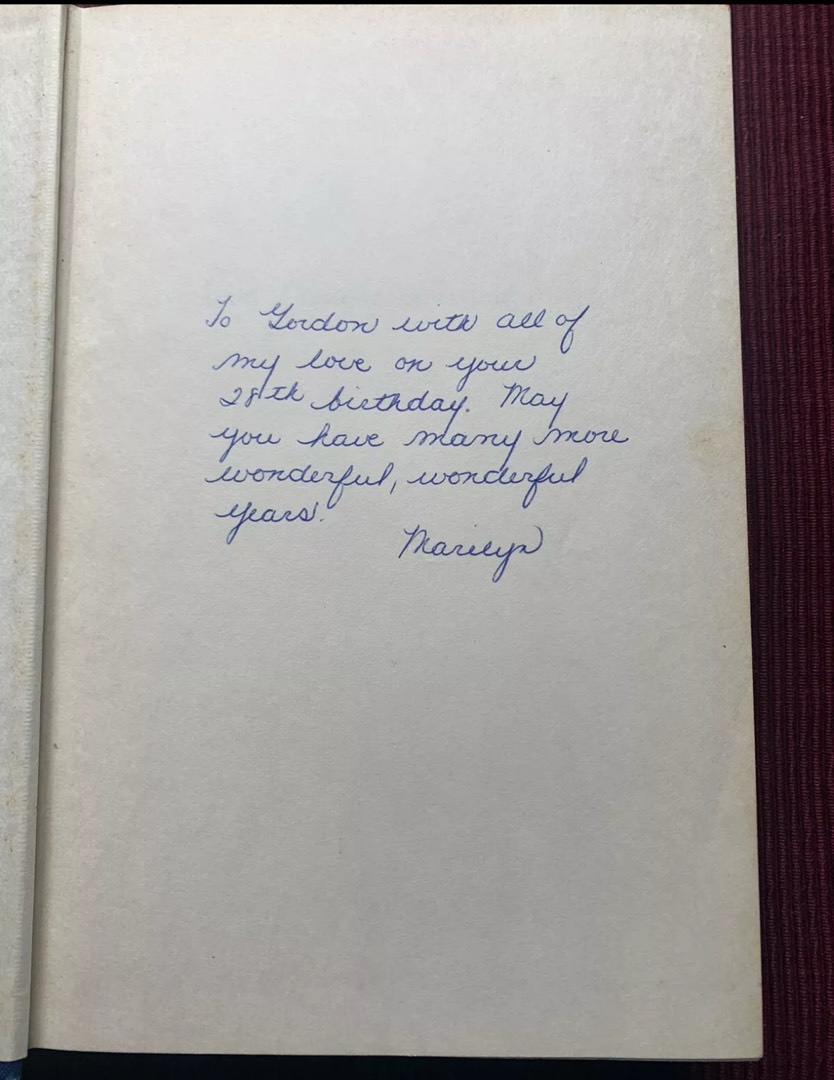 To Gordon with all of
my love on your
28th birthday. May
you have many more
wonderful, wonderful
years.
Marilyn